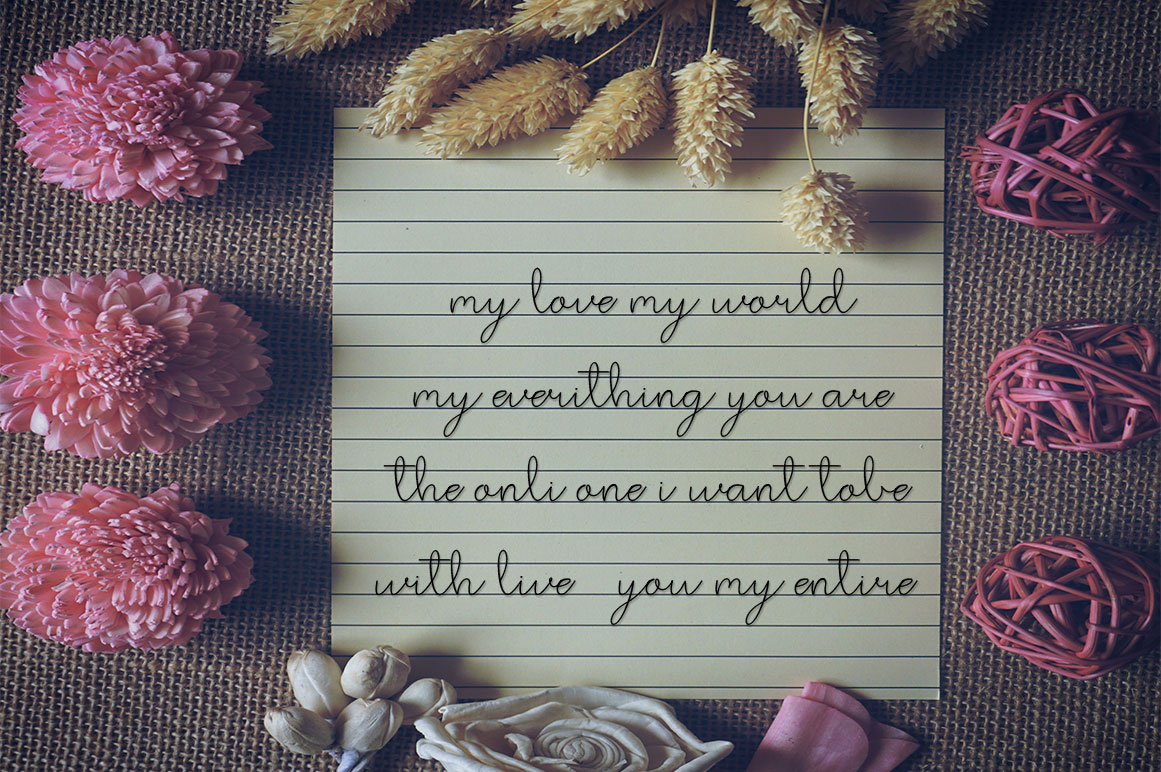 my love my world
my everithing you are
the onli one i want tobe
with live you my entire